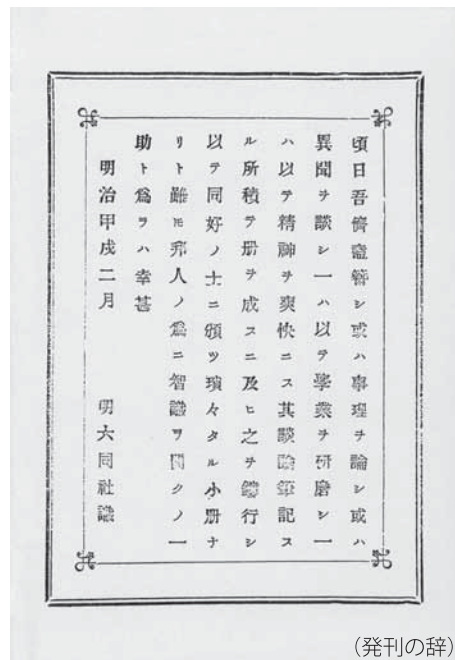 頃日吾儕盍簪シ或ハ事理ヲ論シ或ハ
異聞ヲ談シ一ハ以テ學業ヲ研磨シ一
ハ以テ精神ヲ爽快ニス其談論筆記ス
ル所積テ册ヲ成スニ及ヒ之ヲ鏤行シ
以テ同好ノ士ニ頒ツ瑣々タル小册ナ
リト雖モ邦人ノ爲ニ智識ヲ開クノ一
助ト爲ラハ幸甚
明治甲戌二月 明六同社識
(発刊の辞)